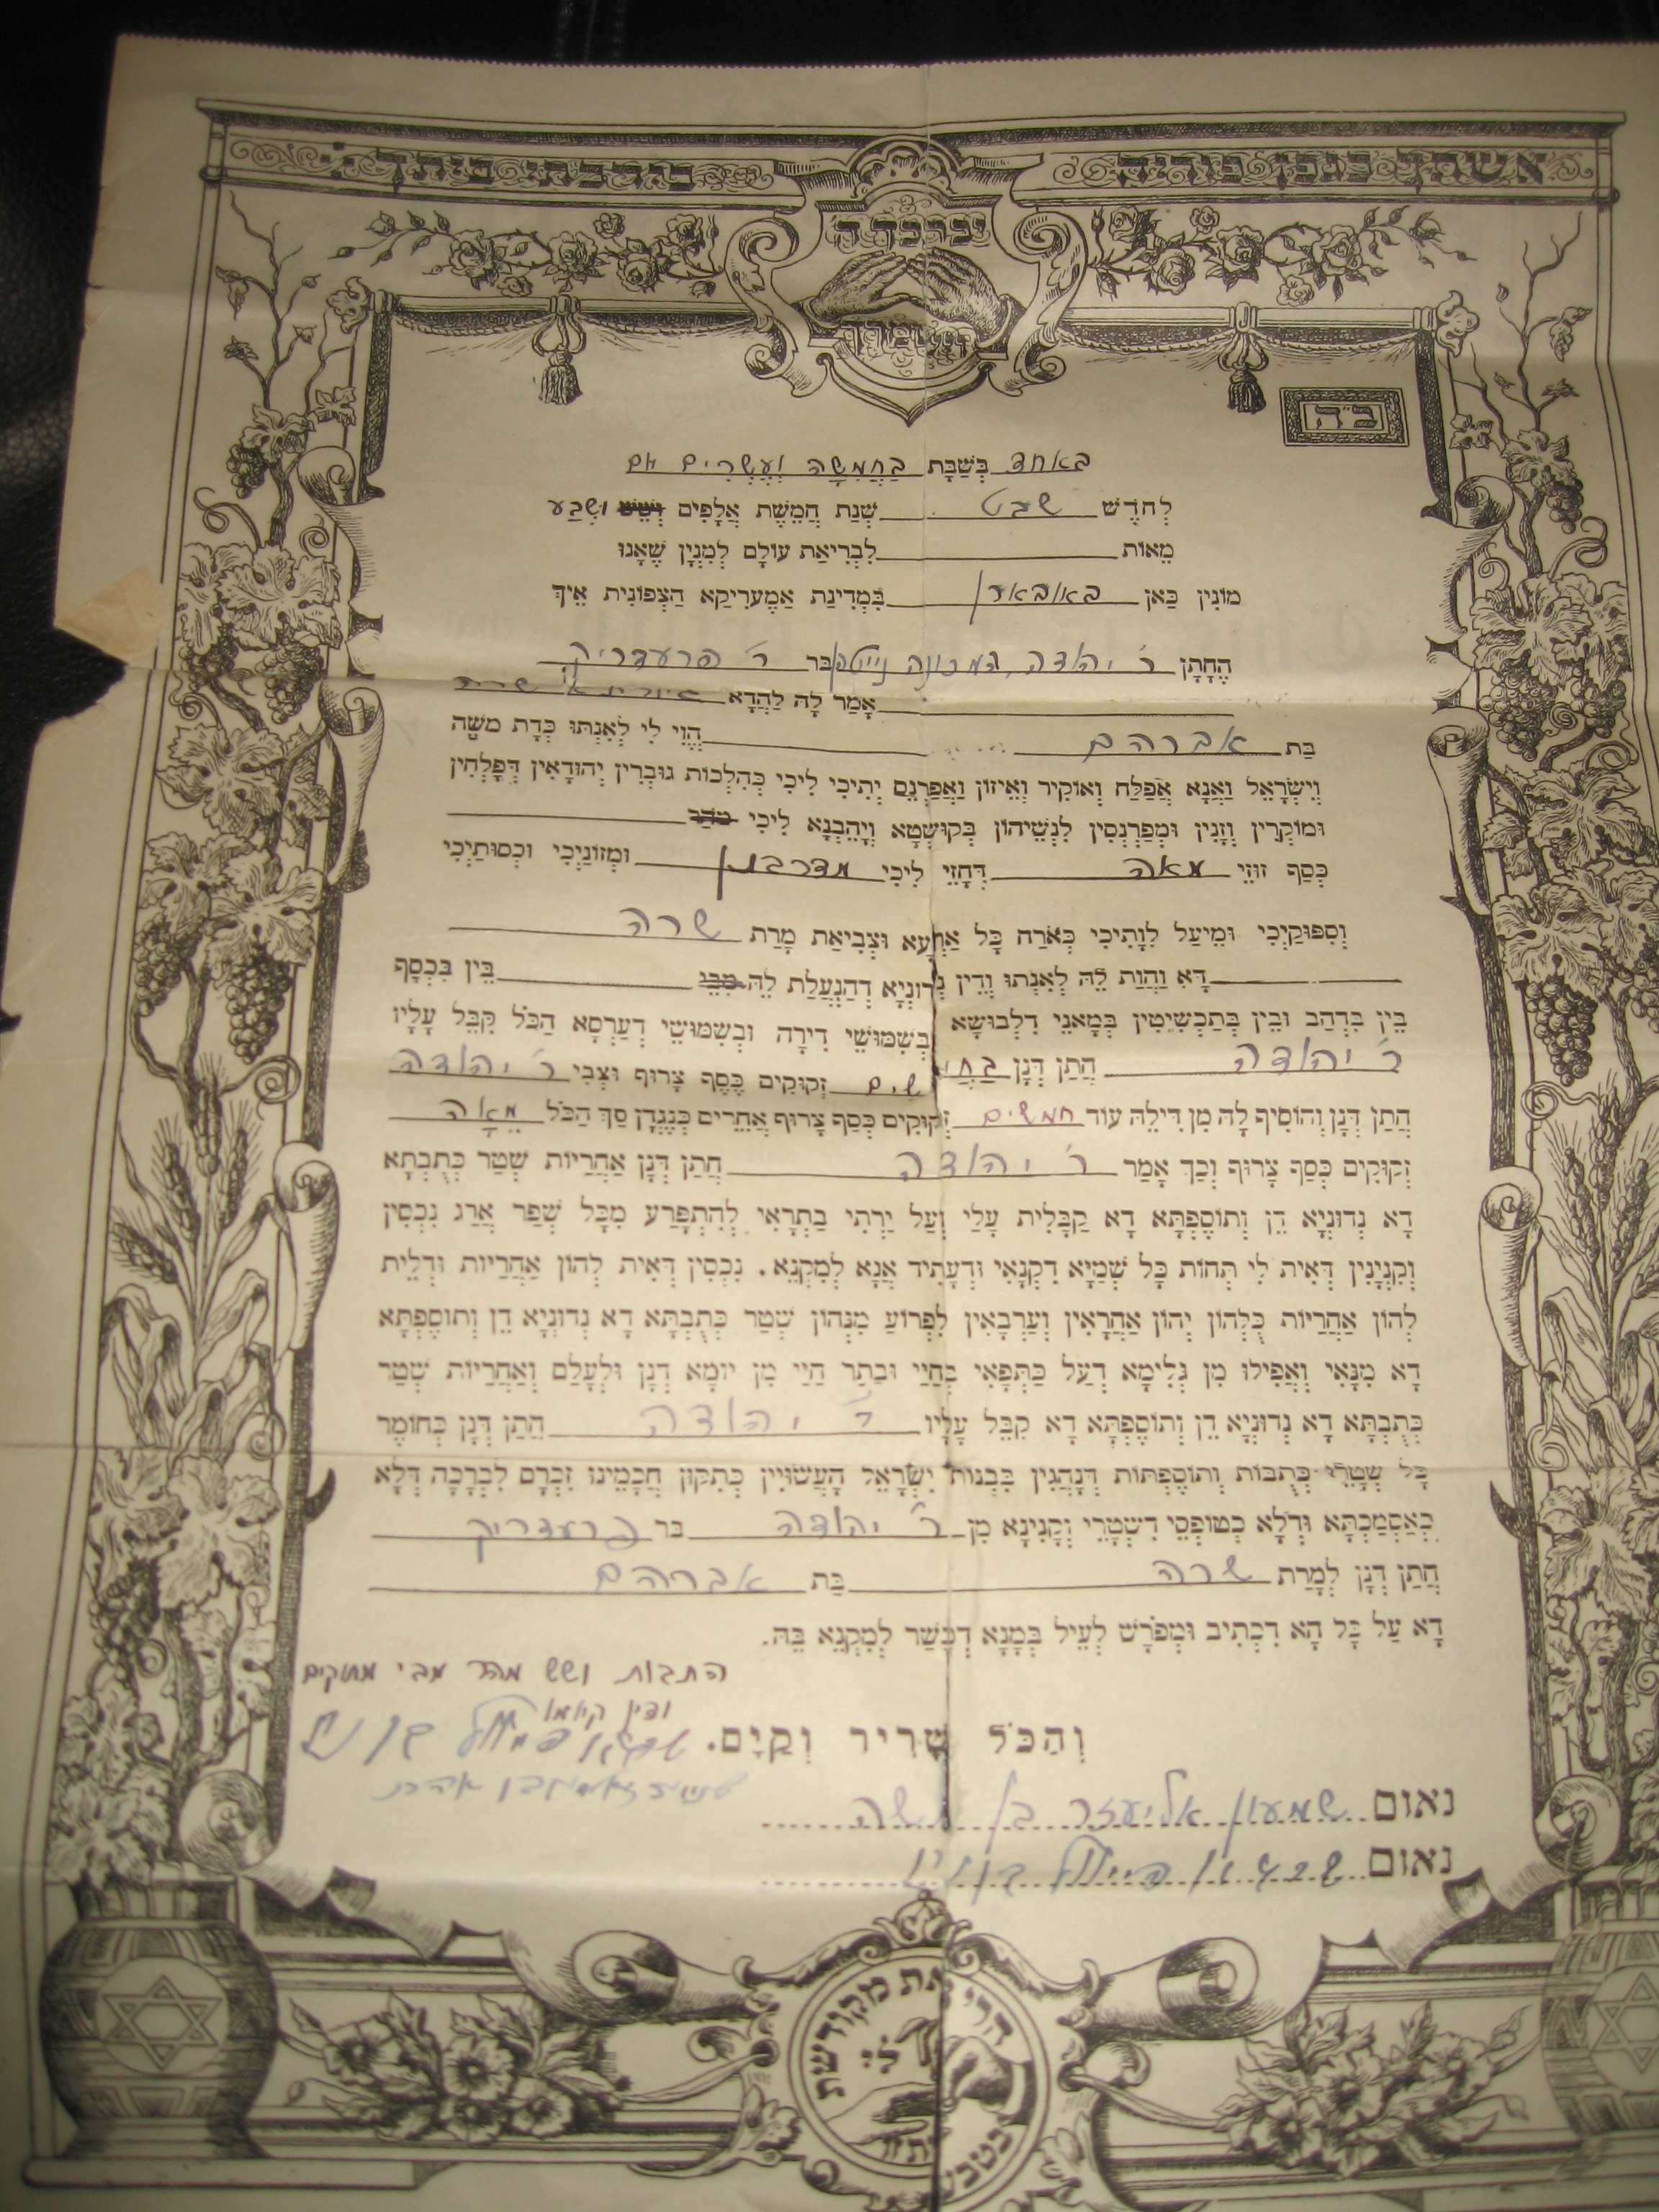 אשתך כגפן פוריה בירכתי ביתך
יברכך ה'
וישמרך
ב"ה
באחד בְּשַׁבָּת בַּחֲמִשָּׁה וְעֶשְׂרִים יום
לְחֹדֶשׁ שבט שְׁנַת חֲמֵשֶׁת אֲלָפִים וְשֵׁשׁ ושֶׁבַע
מֵאוֹת לִבְרִיאַת עוֹלָם לְמִנְיָן שֶׁאָנוּ
מוֹנִין כַּאן בִּמְדִינַת אַמֶערִיקַא הַצְפוֹנִית אֵיךְ
הֶחָתָן ר' יהודה המכונה בַּר ר' פרעדריק
אָמַר לָהּ לַהֲדָא
בַּת אברהם הֲוִי לִי לְאִנְתּוּ כְּדַת משֶׁה
וְיִשְׂרָאֵל וַאֲנָא אֶפְלַח וְאוֹקִיר וְאֵיזוֹן וַאֲפַרְנֵס יָתִיכִי לִיכִי כְּהִלְכוֹת גּוּבְרִין יְהוּדָאִין דְּפָלְחִין
וּמוֹקְרִין וְזָנִין וּמְפַרְנְסִין לִנְשֵׁיהוֹן בְּקוּשְׁטָא וְיָהֵבְנָא לִיכִי מֹהַר
כְּסַף זוּזֵי מאה דְּחָזֵי לִיכִי מדרבנן וּמְזוֹנַיְכִי וּכְסוּתַיְכִי
וְסִפּוּקַיְכִי וּמֵיעַל לְוָתִיכִי כְּאֹרַח כָּל אַרְעָא וּצְבִיאַת מָרַת שרה
דָּא וַהֲוַת לֵהּ לְאִנְתּוּ וְדֵין נְדוּנְיָא דְהַנְעֲלַת לֵהּ מִבֵּי בֵּין בִּכְסָף
בֵּין בִּדְהַב וּבֵין בְּתַכְשִׁיטִין בְּמָאנֵי דִלְבוּשָׁא בְּשִׁמּוּשֵׁי דִירָה וּבְשִׁמּוּשֵׁי דְעַרְסָא הַכֹּל קִבֵּל עָלָיו
ר' יהודה חֲתַן דְּנָן זְקוּקִים כֶּסֶף צָרוּף וּצְבִי ר' יהודה
חֲתַן דְּנָן וְהוֹסִיף לָהּ מִן דִּילֵהּ עוֹד חמשים זְקוּקִים כְּסַף צָרוּף אֲחֵרִים כְּנֶגְדָּן סַךְ הַכֹּל מֵאָה
זְקוּקִים כְּסַף צָרוּף וְכָךְ אָמַר ר' יהודה חֲתַן דְּנָן אַחֲרָיוּת שְׁטַר כְּתֻבְתָּא
דָּא נְדוּנְיָא דֵן וְתוֹסֶפְתָּא דָא קַבָּלִית עָלַי וְעַל יַרְתִי בַתְרָאִי לְהִתְפָּרַע מִכָּל שְׁפַר אֲרַג נִכְסִין
וְקִנְיָנִין דְּאִית לִי תְּחוֹת כָּל שְׁמַיָּא דִקְנָאִי וּדְעָתִיד אֲנָא לְמִקְנֵא. נִכְסִין דְּאִית לְהוֹן אַחֲרָיוּת וּדְלֵית
לְהוֹן אַחֲרָיוּת כֻּלְּהוֹן יְהוֹן אַחֲרָאִין וְעַרְבָאִין לִפְרוֹעַ מִנְּהוֹן שְׁטַר כְּתֻבְתָּא דָא נְדוּנְיָא דֵן וְתוֹסֶפְתָּא
דָא מִנָּאִי וַאֲפִילוּ מִן גְּלִימָא דְעַל כַּתְפָּאִי בְּחַיַּי וּבָתַר חַיַּי מִן יוֹמָא דְנָן וּלְעָלַם וְאַחֲרָיוּת שְׁטַר
כְּתֻבְתָּא דָא נְדוּנְיָא דֵן וְתוֹסֶפְתָּא דָא קִבֵּל עָלָיו ר' יהודה חֲתַן דְּנָן כְּחוֹמֶר
כָּל שְׁטָרֵי כְּתֻבּוֹת וְתוֹסֶפְתּוֹת דְּנָהֲגִין בִּבְנוֹת יִשְׂרָאֵל הָעֲשׂוּיִין כְּתִקּוּן חֲכָמֵינוּ זִכְרָם לִבְרָכָה דְּלָא
כְּאַסְמַכְתָּא וּדְלָא כְטוֹפְסֵי דִשְׁטָרֵי וְקָנִינָא מִן ר' יהודה בַּר פרעדריק
חֲתַן דְּנָן לְמָרַת שרה בַּת אברהם
דָּא עַל כָּל הָא דִכְתִיב וּמְפֹרָשׁ לְעֵיל בְּמָנָא דְכָשַׁר לְמִקְנֵא בֵּהּ.
התבות ושש מהר מבי מחוקים
ודין קיומו
וְהַכֹּל שָׁרִיר וְקַיָּם.
נאום שמעון אליעזר בן משה
נאום
הרי את מקודשת
לי
בטבעת